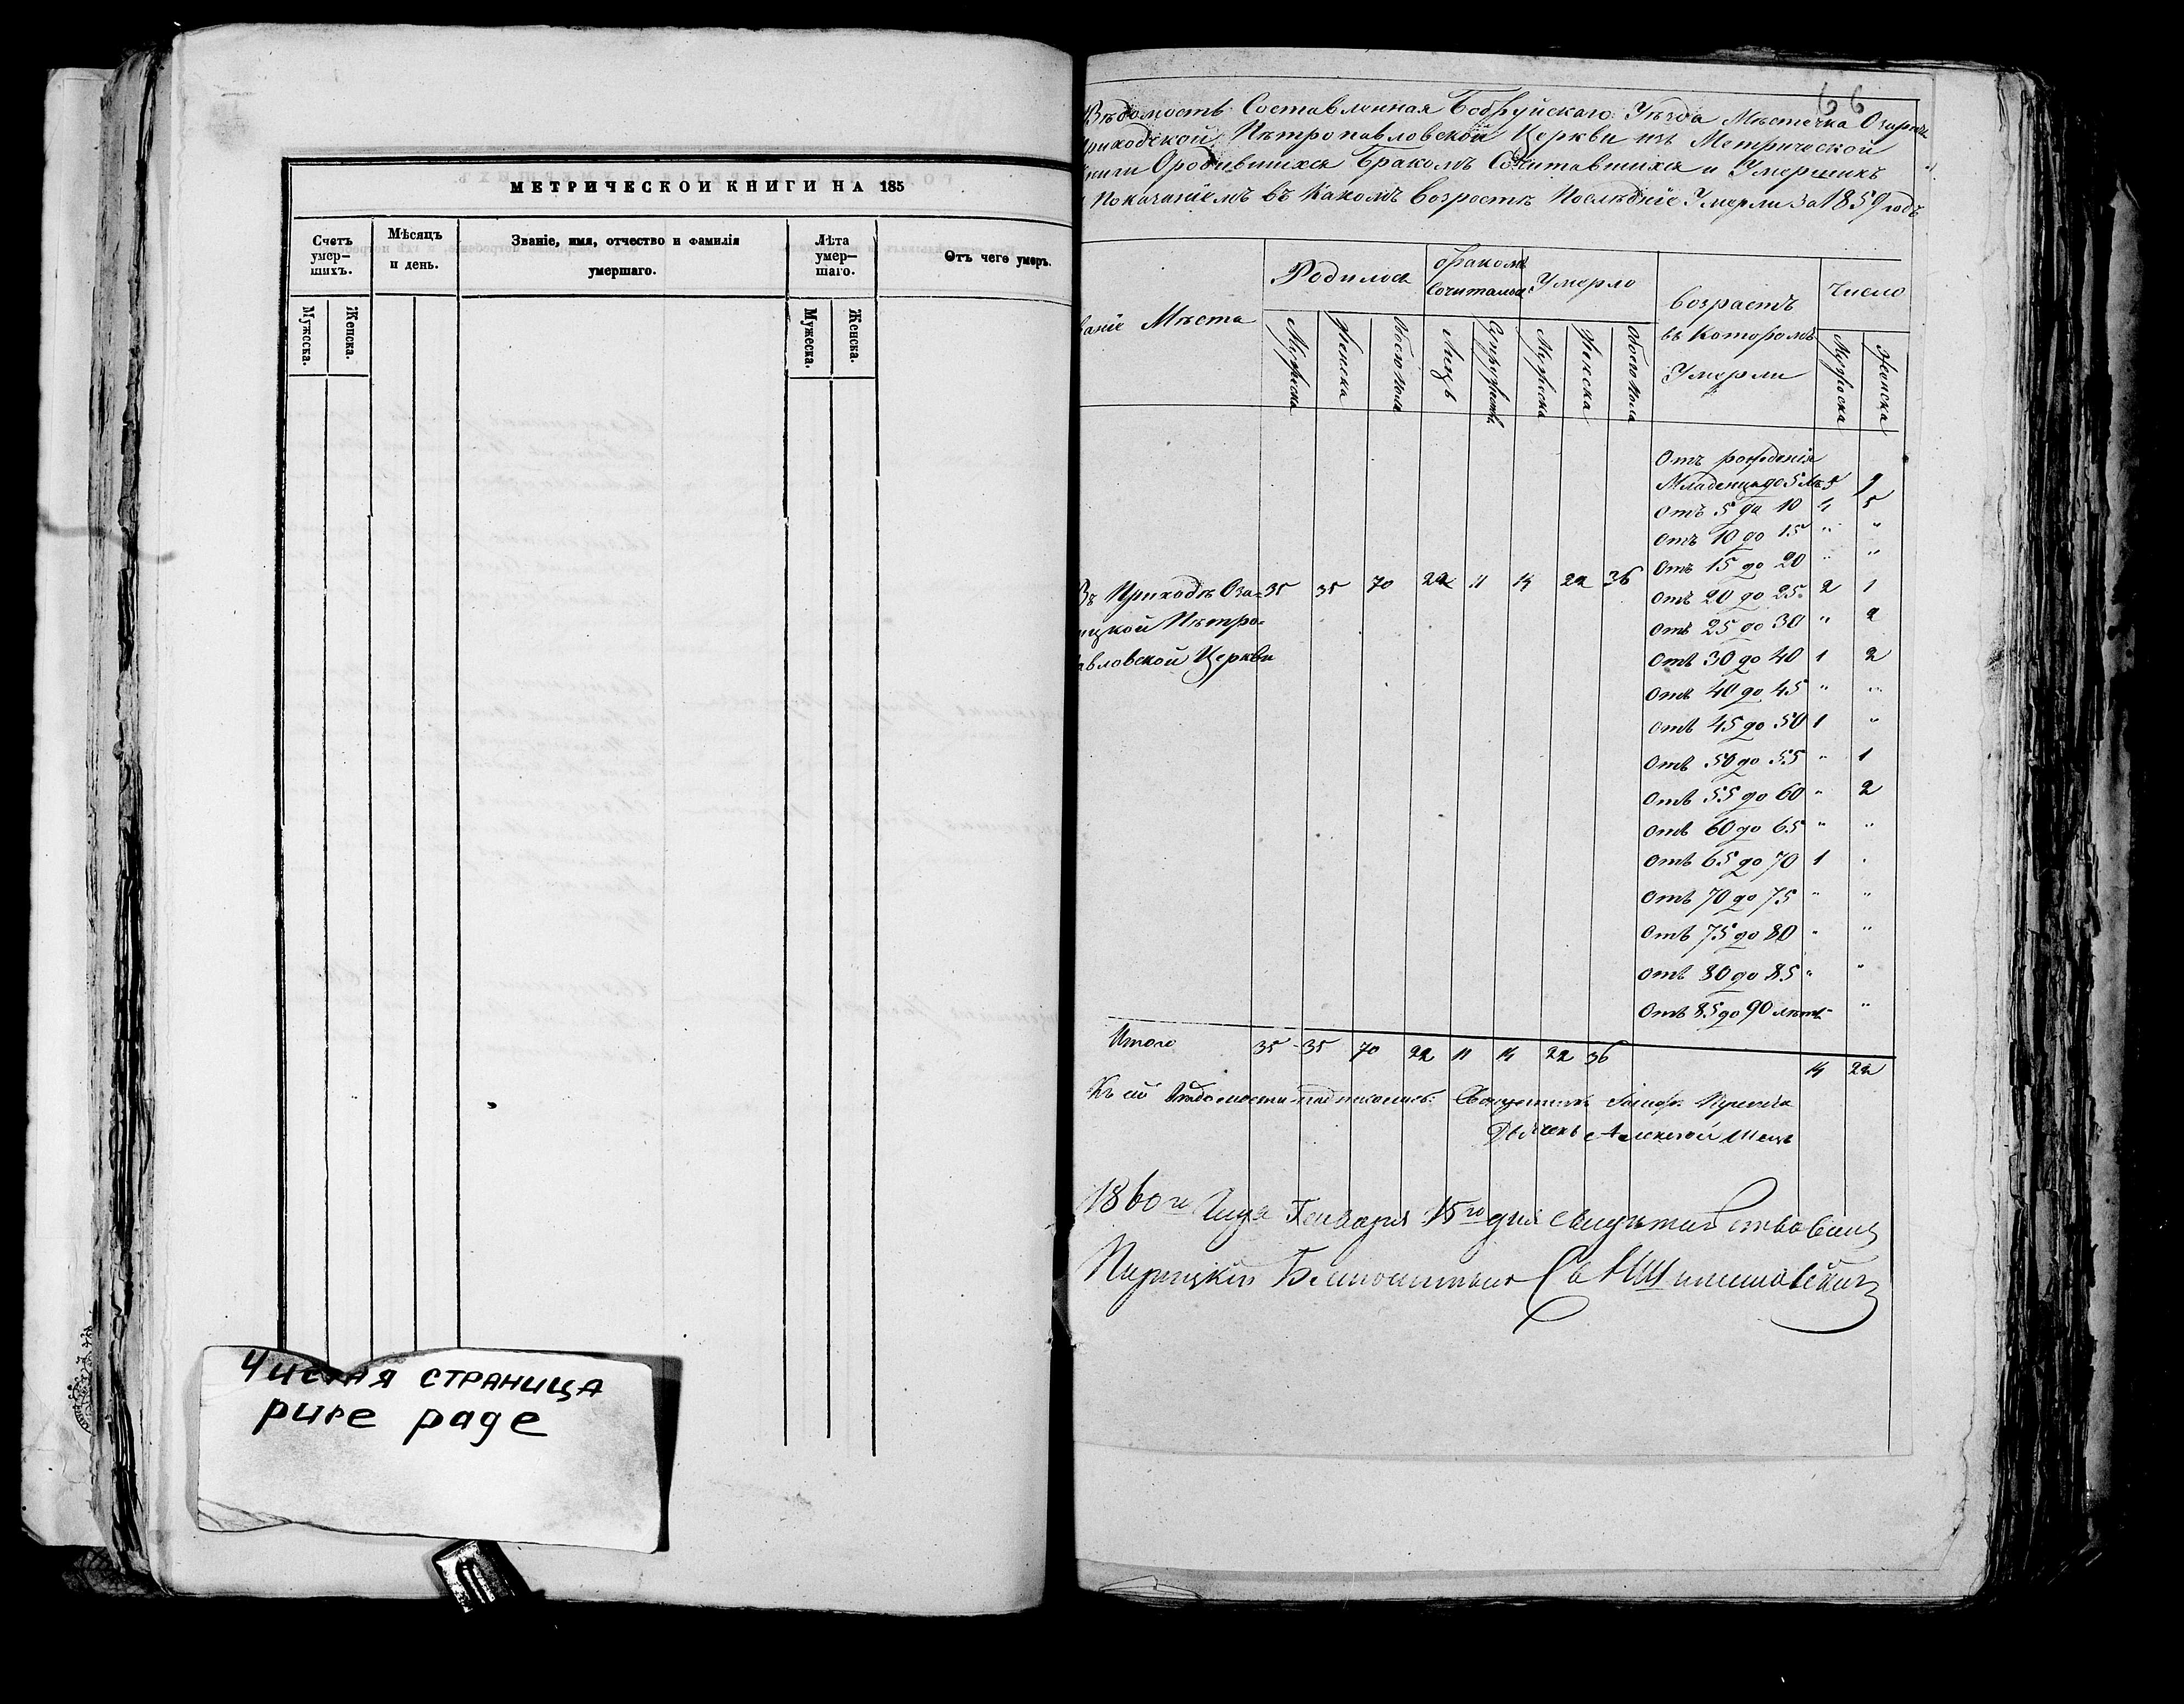 МЕТРИЧЕСКОЙ КНИГИ НА 185
Счетъ умер–шихъ.
Мѣсяцъ и день.
Званіе, имя, отчество и фамилія умершаго.
Лѣта умер–шаго.
Отъ чего умеръ.
Мужеска.
Женска.
Мужеска.
Женска.
Чистая страница
pure page
66
Вѣдомость Составленная Бобруйскаго Уѣзда Мѣстечка Озаричъ
приходской Пѣтропавловской Церкви изъ Метрической
книги Ородившихся Бракомъ Сочитавшихся и Умершихъ
Показаніемъ въ Какомъ возростѣ Послѣдніе Умерли За 1859 годъ
ваніе Мѣста
Родилось
бракомъ Сочитались
Умерло
возрастъ въ Которомъ Умерли
Число
Мужеска
Женска
Обоего пола
Лицъ
Супружествъ
Мужеска
Женска
Обоего пола
Мужеска
Женска
Отъ рожденія
Младенцы до 5 лѣ 5 9
Отъ 5 до 10 4 5
Отъ 10 до 15 " "
Отъ 15 до 20 " "
Въ Приходѣ Оза= 35 35 70 22 11 14 22 36
Отъ 20 до 25 2 1
ицкой Пѣтро=
Отъ 25 до 30 " 2
авловской Церкви
Отъ 30 до 40 1 2
Отъ 40 до 45 " "
Отъ 45 до 50 1 "
Отъ 50 до 55 " 1
Отъ 55 до 60 " 2
Отъ 60 до 65 " "
Отъ 65 до 70 1 "
Отъ 70 до 75 " "
Отъ 75 до 80 " "
Отъ 80 до 85 " "
Отъ 85 до 90 лѣтъ "
Итого 35 35 70 22 11 14 22 36 14 22
Къ сей Вѣдомости подписались: Священникъ
Дьячекъ Алексей Шецъ
1860го Года Генваря 15го дня свидѣтельствовалъ
Паричкій Благочинный Св